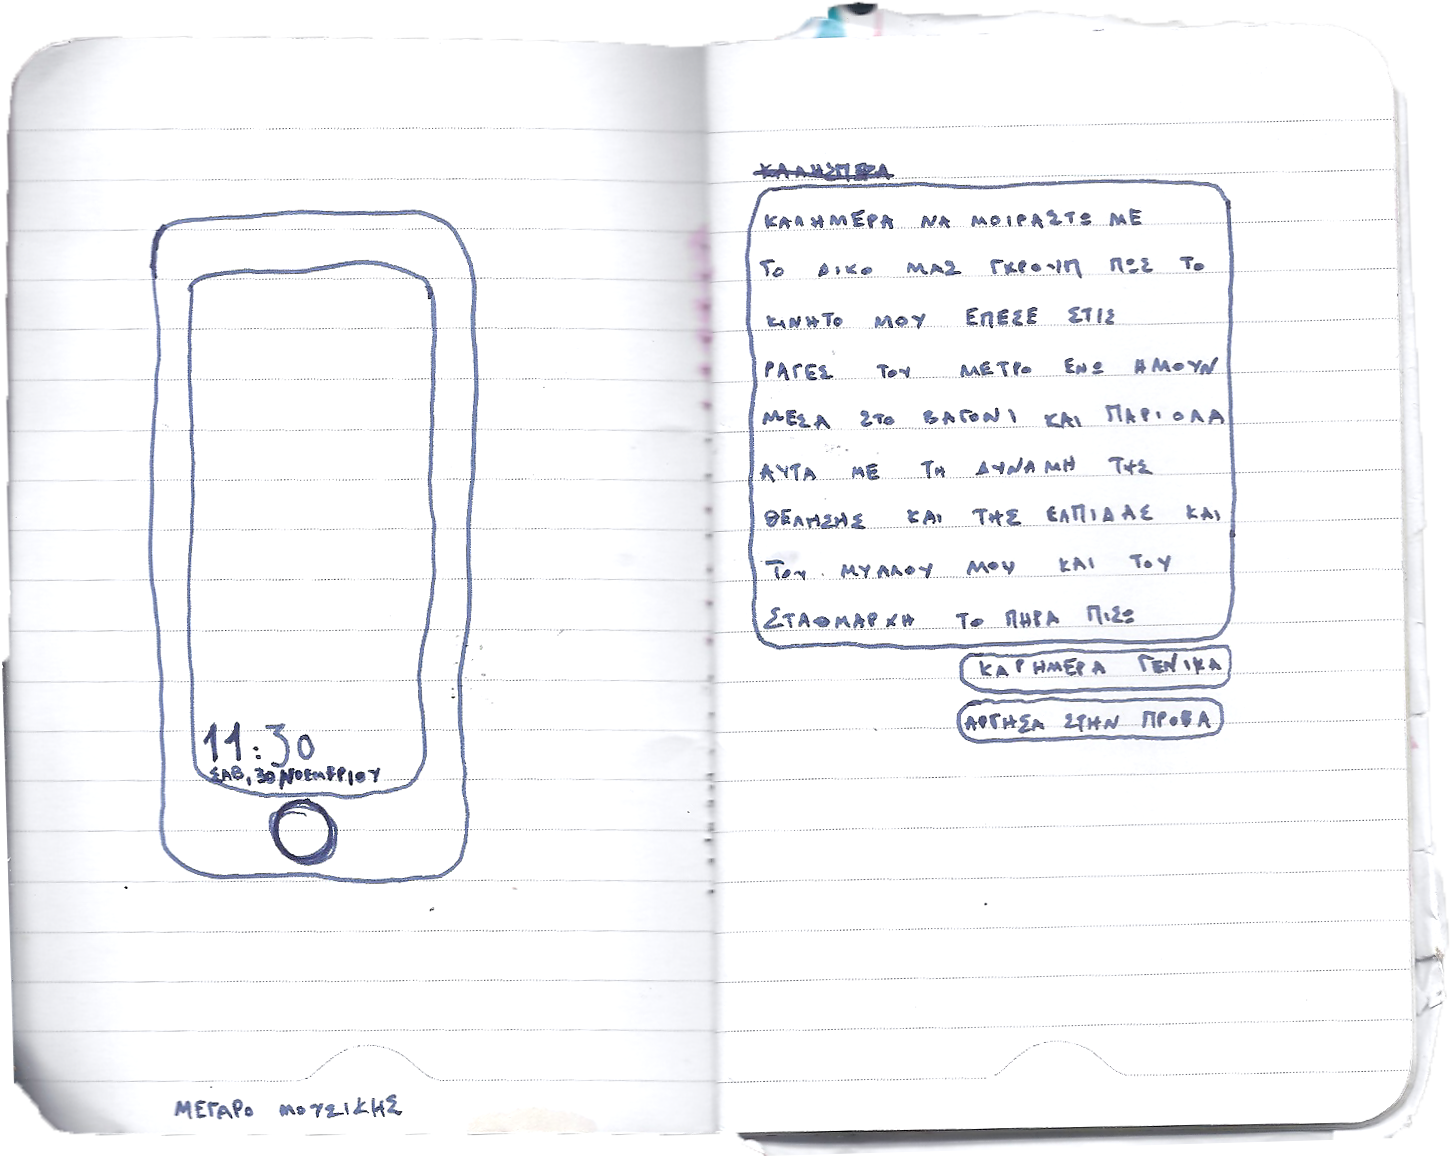 11:30
ΣΑΒ, 30 ΝΟΕΜΒΡΙΟΥ
ΜΕΓΑΡΟ ΜΟΥΣΙΚΗΣ
ΚΑΛΗΣΠΕΡΑ
ΚΑΛΗΜΕΡΑ ΝΑ ΜΟΙΡΑΣΤΩ ΜΕ
ΤΟ ΔΙΚΟ ΜΑΣ ΓΚΡΟΥΠ ΠΩΣ ΤΟ
ΚΙΝΗΤΟ ΜΟΥ ΕΠΕΣΕ ΣΤΙΣ
ΡΑΓΕΣ ΤΟΥ ΜΕΤΡΟ ΕΝΩ ΗΜΟΥΝ
ΜΕΣΑ ΣΤΟ ΒΑΓΟΝΙ ΚΑΙ ΠΑΡΙΟΛΑ
ΑΥΤΑ ΜΕ ΤΗ ΔΥΝΑΜΗ ΤΗΣ
ΘΕΛΗΣΗΣ ΚΑΙ ΤΗΣ ΕΛΠΙΔΑΣ ΚΑΙ
ΤΟΥ ΜΥΑΛΟΥ ΜΟΥ ΚΑΙ ΤΟΥ
ΣΤΑΘΜΑΡΧΗ ΤΟ ΠΗΡΑ ΠΙΣΩ
ΚΑΡΗΜΕΡΑ ΓΕΝΙΚΑ
ΑΡΓΗΣΑ ΣΤΗΝ ΠΡΟΒΑ